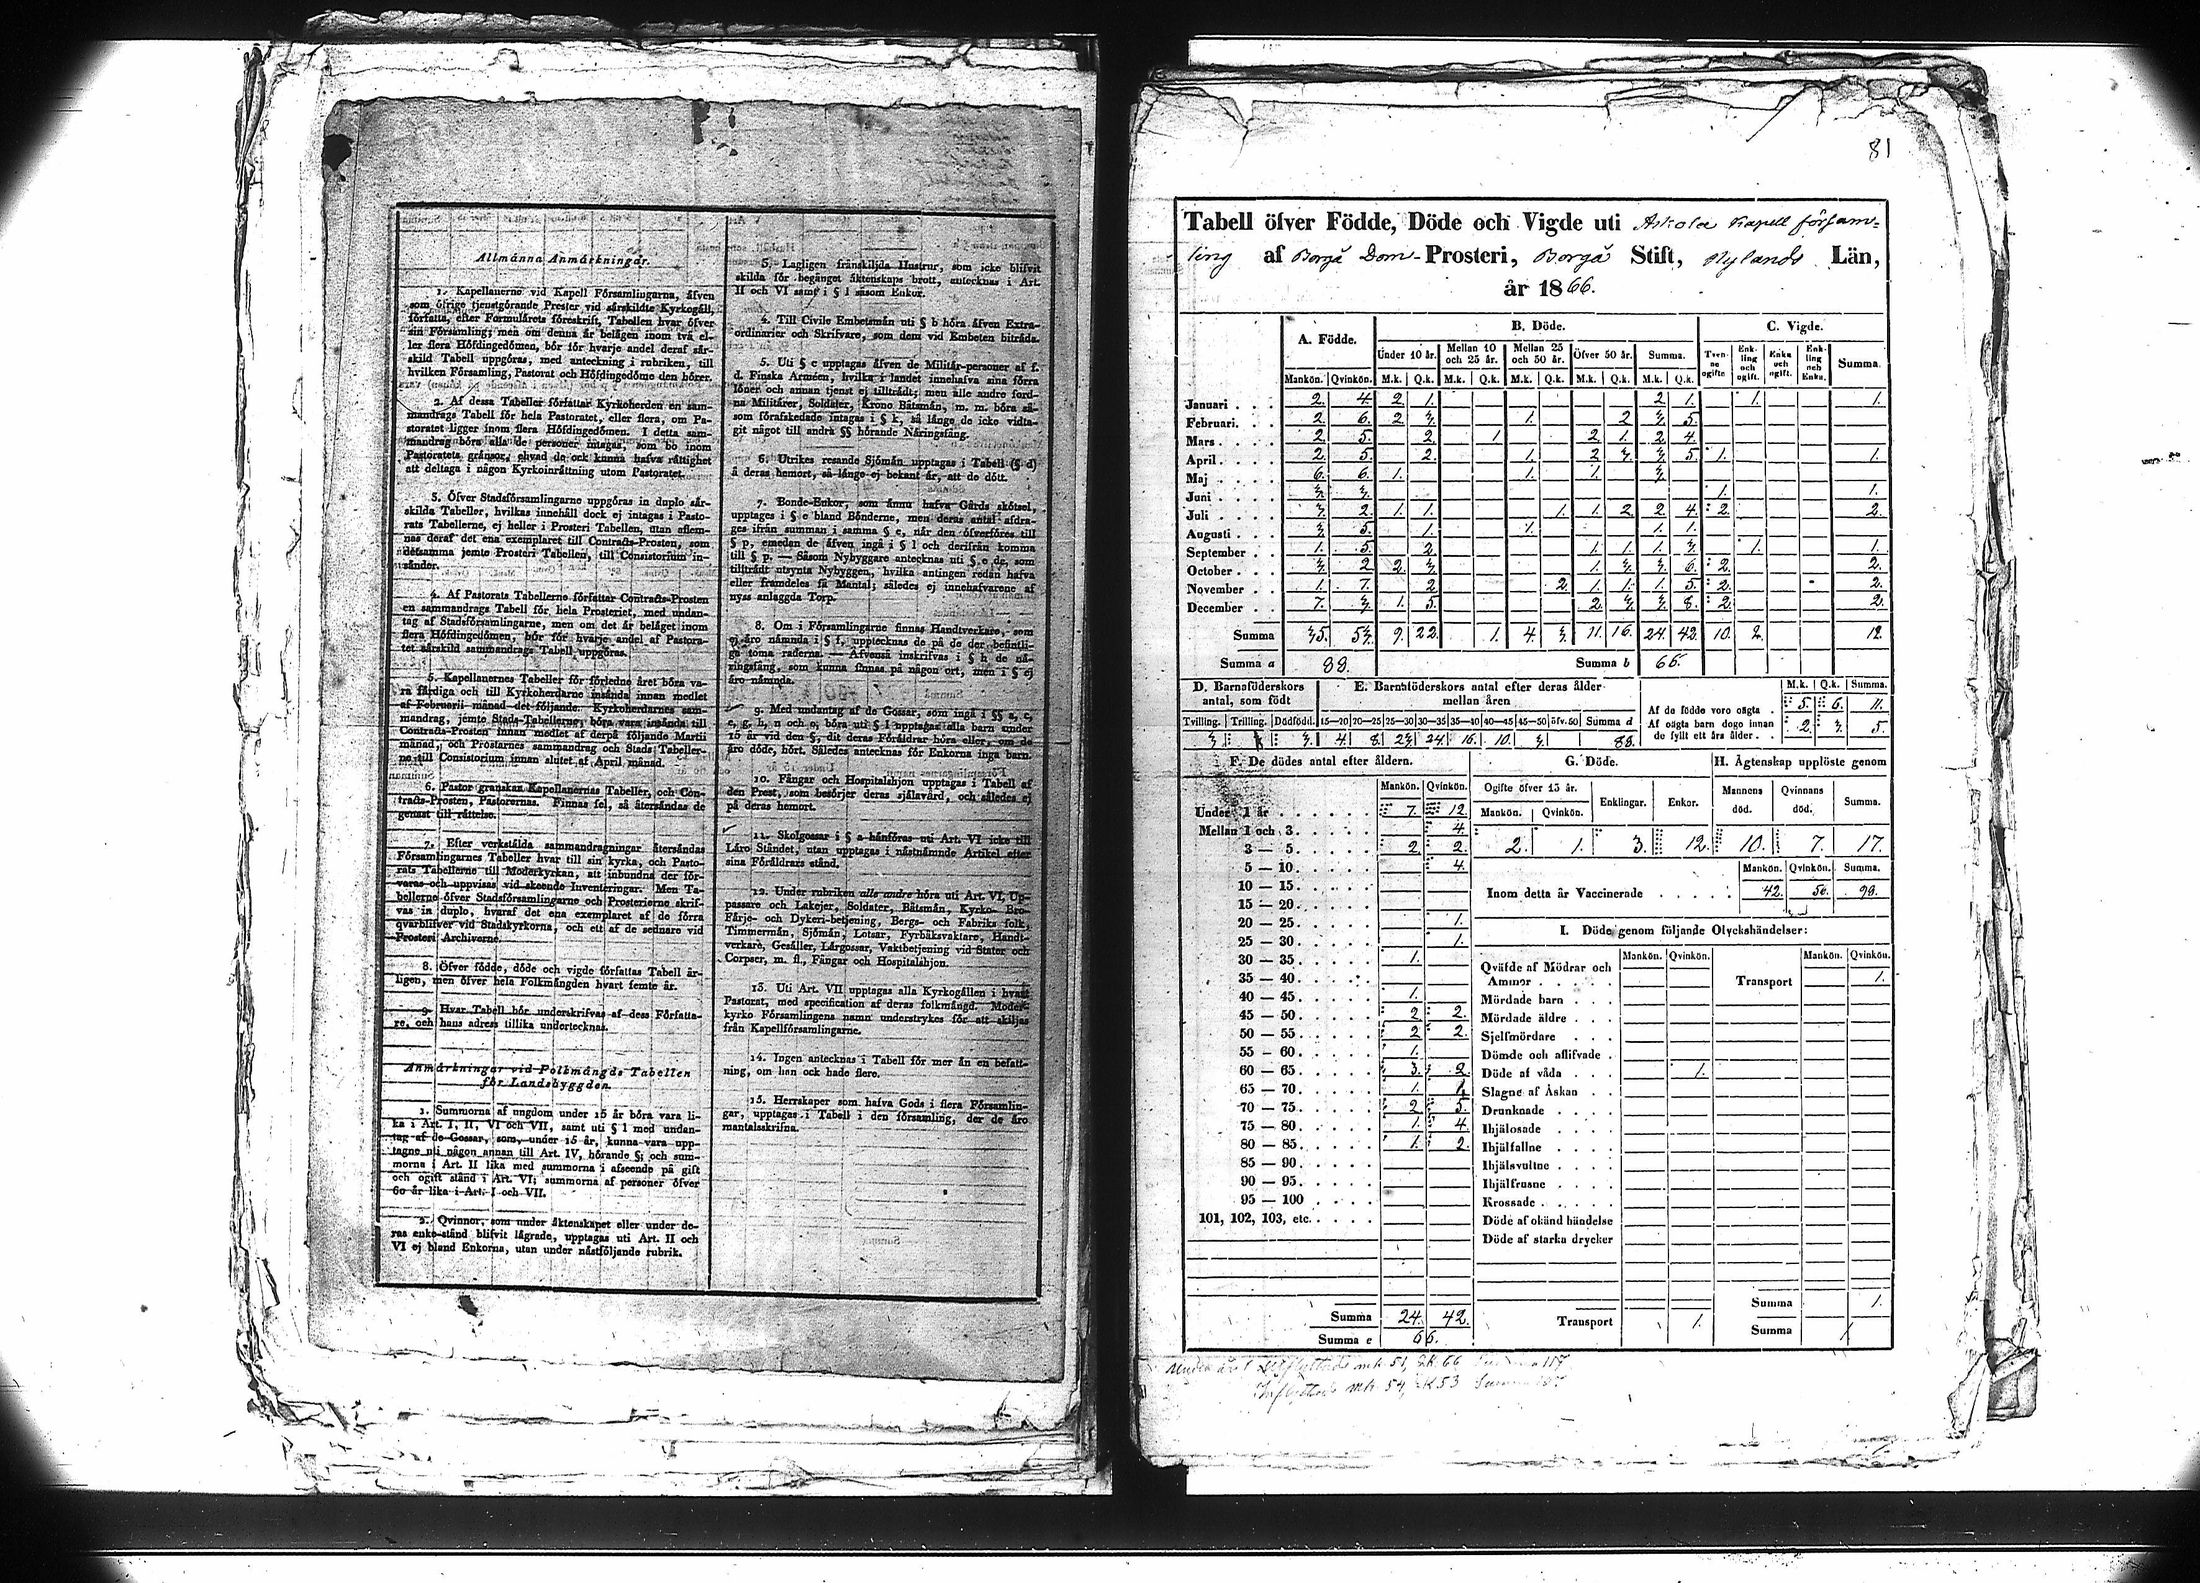 Allmänna Anmärkningar.
1. Kapellanerne vid Kapell Församlingarna, äfven
som öfrige tjenstgörande Prester vid särskildte Kyrkogäll,
författa, efter Formulärets föreskrift, Tabellen hvar öfver
sin Församling; men om denna är belägen inom två el-
ler flera Höfdingedömen, bör för hvarje andel deraf sär-
skild Tabell uppgöras, med anteckning i rubriken, till
hvilken Församling, Pastorat och Höfdingedöme den hörer.
2. Af dessa Tabeller författar Kyrkoherden en sam-
mandrags Tabell för hela Pastoratet, eller flera, om Pa-
storatet ligger inom flera Höfdingedömen. I detta sam-
mandrag böra alla de personer intagas, som bo inom
Pastoratets gränsor, ehvad de ock kunna hafva rättighet
att deltaga i någon Kyrkoinrättning utom Pastoratet.
3. Öfver Stadsförsamlingarne uppgöras in duplo sär-
skilda Tabeller, hvilkas innehåll dock ej intages i Pasto-
rats Tabellerne, ej heller i Prosteri Tabellen, utan aflem-
nas deraf det ena exemplaret till Contracts-Prosten, som
detsamma jemte Prosteri Tabellen, till Consistorium in-
sänder.
4. Af Pastorats Tabellerne författar Contracts-Prosten
en sammandrags Tabell för hela Prosteriet, med undan-
tag af Stadsförsamlingarne, men om det är beläget inom
flera Höfdingedömen, bör för hvarje andel af Pastora-
tet särskild sammandrags Tabell uppgöras.
5. Kapellanernes Tabeller för förledne året böra va-
ra färdiga och till Kyrkoherdarne insända innan medlet
af Februarii månad det följande. Kyrkoherdarnes sam-
mandrag, jemte Stads-Tabellerne, böra vara insända till
Contracts-Prosten innan medlet af derpå följande Martii
månad, och Prostarnes sammandrag och Stads Tabeller-
ne till Consistorium innan slutet af April månad.
6. Pastor granskar Kapellanernas Tabeller, och Con-
tracts-Prosten, Pastorernas. Finnas fel, så återsändas de
genast till rättelse.
7. Efter verkstälda sammandragningar återsändas
Församlingarnes Tabeller hvar till sin kyrka, och Pasto-
rats Tabellerne till Moderkyrkan, att inbundna der för-
varas och uppvisas vid skeende Inventeringar. Men Ta-
bellerne öfver Stadsförsamlingarne och Prosterierne skrif-
vas in duplo, hvaraf det ena exemplaret af de förra
qvarblifver vid Stadskyrkorna, och ett af de sednare vid
Prosteri Archiverne.
8. Öfver födde, döde och vigde författas Tabell år-
ligen, men öfver hela Folkmängden hvart femte år.
9. Hvar Tabell bör underskrifvas af dess Författa-
re, och hans adress tillika undertecknas.
Anmärkningar vid Folkmängds Tabellen
för Landsbyggden.
1. Summorna af ungdom under 15 år böra vara li-
ka i Art. I, II, VI och VII, samt uti § l med undan-
tag af de Gossar, som, under 15 år, kunna vara upp-
tagne uti någon annan till Art. IV, hörande §; och sum-
morna i Art. II lika med summorna i afseende på gift
och ogift stånd i Art. VI; summorna af personer öfver
60 år lika i Art. I och VII.
2. Qvinnor, som under äktenskapet eller under de-
ras enke-stånd blifvit lägrade, upptagas uti Art. II och
VI ej bland Enkorna, utan under nästföljande rubrik.
3. Lagligen frånskiljda Hustrur, som icke blifvit
skilda för begånget äktenskaps brott, antecknas i Art.
II och VI samt i § l såsom Enkor.
4. Till Civile Embetsmän uti § b höra äfven Extra-
ordinarier och Skrifvare, som dem vid Embeten biträda.
5. Uti § c upptagas äfven de Militär-personer af f.
d. Finska Arméen, hvilka i landet innehafva sina förra
löner och annan tjenst ej tillträdt; men alle andre ford-
na Militärer, Soldater, Krono Båtsmän, m. m. böra så-
som förafskedade intagas i § k, så länge de icke vidta-
git något till andra §§ hörande Näringsfång.
6. Utrikes resande Sjömän upptagas i Tabell (§ d)
å deras hemort, så länge ej bekant är, att de dött.
7. Bonde-Enkor, som ännu hafva Gårds skötsel,
upptages i § e bland Bönderne, men deras antal afdra-
ges ifrån summan i samma § e, när den öfverföres till
§ p, emedan de äfven ingå i § l och derifrån komma
till § p. — Såsom Nybyggare antecknas uti § e de, som
tillträdt utsynta Nybyggen, hvilka antingen redan hafva
eller framdeles få Mantal; således ej innehafvarene af
nyss anlaggda Torp.
8. Om i Församlingarne finnas Handtverkare, som
ej äro nämnda i § f, upptecknas de på de der befintli-
ga toma raderna. — Äfvenså inskrifvas i § h de nä-
ringsfång, som kunna finnas på någon ort, men i § ej
äro nämnda.
9. Med undantag af de Gossar, som ingå i §§ a, c,
e, g, h, n och o, böra uti § l upptagas alla barn under
15 år vid den §, dit deras Föräldrar höra eller, om de
äro döde, hört. Således antecknas för Enkorna inga barn.
10. Fångar och Hospitalshjon upptagas i Tabell af
den Prest, som besörjer deras själavård, och således ej
på deras hemort.
11. Skolgossar i § a hänföras uti Art. VI icke till
Läro Ståndet, utan upptagas i nästnämnde Artikel efter
sina Föräldrars stånd.
12. Under rubriken alls andre höra uti Art. VI, Up-
passare och Lakejer, Soldater, Båtsmän, Kyrko- Bro-
Färje- och Dykeri-betjening, Bergs- och Fabriks folk,
Timmermän, Sjömän, Lotsar, Fyrbåksvaktare, Handt-
verkare, Gesäller, Lärgossar, Vaktbetjening vid Stater och
Corpser, m. fl., Fångar och Hospitalshjon.
13. Uti Art. VII upptagas alla Kyrkogällen i hvart
Pastorat, med specification af deras folkmängd. Moder-
kyrko Församlingens namn understrykes för att skiljas
från Kapellförsamlingarne.
14. Ingen antecknas i Tabell för mer än en befatt-
ning, om han ock hade flere.
15. Herrskaper som hafva Gods i flera Församlin-
gar, upptagas i Tabell i den församling, der de äro
mantalsskrifna.
81
Tabell öfver Födde, Döde och Vigde uti Askola Kapell församl-
ing af Borgå Dom-Prosteri, Borgå Stift, Nylands Län,
år 1866.
A. Födde. B. Döde. C. Vigde.
Under 10 år. Mellan 10 och 25 år. Mellan 25 och 50 år. Öfver 50 år. Summa. Tven-ne ogifte Enk-ling och ogift. Enka och ogift. Enk-ling och Enka. Summa.
Mankön. Qvinkön. M.k. Q.k. M.k. Q.k. M.k. Q.k. M.k. Q.k. M.k. Q.k.
Januari . . . 2. 4. 2. 1. 2. 1. 1. 1.
Februari. . . 2. 6. 2. 3. 1. 2 3. 5.
Mars . . . . 2. 5. 2. 1 2. 1. 2. 4.
April . . . . 2. 5. 2. 1. 2 3. 3. 5. 1. 1.
Maj . . . . 6. 6. 1. 1. 1. 3.
Juni . . . . 3. 3. 1. 1.
Juli . . . . 3. 2. 1. 1. 1. 1. 2. 2. 4. 2. 2.
Augusti . . . 3. 5. 1. 1. 1. 1.
September . . 1. 5. 2. 1. 1. 1. 3. 1. 1.
October . . . 3. 2 2. 3. 1. 3. 3. 6. 2. 2.
November . . 1. 7. 2 2. 1. 1. 1. 5. 2. 2.
December . . 7. 3. 1. 5. 2. 3. 3. 8. 2. 2.
Summa 35. 53. 9. 22. 1. 4. 3. 11. 16. 24. 42. 10. 2. 12.
Summa a 88. Summa b 66.
D. Barnaföderskors antal, som födt
Tvilling. Trilling. Dödfödd.
3. 3.
E. Barnaföderskors antal efter deras ålder mellan åren
15—20 20—25 25—30 30—35 35—40 40—45 45—50 öfv.50 Summa d
4. 8. 23. 24. 16. 10. 3. 88.
M.k. Q.k. Summa.
Af de födde voro oägta . 5. 6. 11.
Af oägta barn dogo innan
de fyllt ett års ålder. . 2. 3. 5.
F. De dödes antal efter åldern.
Mankön. Qvinkön.
Under 1 år . . . . . . 7. 12.
Mellan 1 och 3. . . . . 4.
3 — 5. . . . . 2. 2.
5 — 10. . . . . 4.
10 — 15. . . . .
15 — 20. . . . .
20 — 25. . . . . 1.
25 — 30. . . . . 1.
30 — 35. . . . . 1.
35 — 40. . . . .
40 — 45. . . . . 1.
45 — 50. . . . . 2. 2.
50 — 55. . . . . 2 2.
55 — 60. . . . . 1.
60 — 65. . . . . 3. 2.
65 — 70. . . . . 1. 1.
70 — 75. . . . . 2 5.
75 — 80. . . . . 1. 4.
80 — 85. . . . . 1. 2.
85 — 90. . . . .
90 — 95. . . . .
95 — 100 . . . .
101, 102, 103, etc. . . . .
Summa 24. 42.
Summa e 66.
G. Döde.
Ogifte öfver 15 år. Enklingar. Enkor.
Mankön. Qvinkön.
2. 1. 3. 12.
H. Ägtenskap upplöste genom
Mannens död. Qvinnans död. Summa.
10. 7. 17.
Mankön. Qvinkön. Summa.
Inom detta år Vaccinerade . . . . . 42. 56. 98.
I. Döde genom följande Olyckshändelser:
Mankön. Qvinkön. Mankön. Qvinkön.
Qväfde af Mödrar och
Ammor . . . . . .
Mördade barn . . .
Mördade äldre . . .
Sjelfmördare . . .
Dömde och aflifvade .
Döde af våda . . . 1.
Slagne af Åskan . .
Drunknade . . . .
Ihjälosade . . . .
Ihjälfallne . . . .
Ihjälsvultne . . . .
Ihjälfrusne . . . .
Krossade . . . . .
Döde af okänd händelse
Döde af starka drycker
Transport 1.
Transport 1.
Summa 1.
Summa 1
Under året Utflyttade mk. 51, qk. 66 Summa 117
Inflyttade mk. 54, qk 53 Summa 107